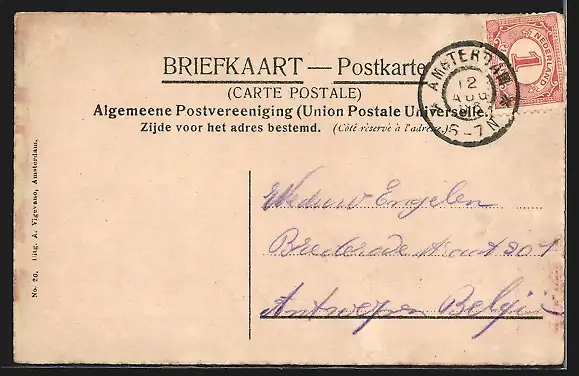 BRIEFKAART — Postkarte
(CARTE POSTALE)
Algemeene Postvereeniging (Union Postale Universelle.)
Zijde voor het adres bestemd. (Côté réservé à l'adresse.)
AMSTERDAM
12
AUG
6-7N
NEDERLAND
1
Weduw Engelen
Brederodestraat 201
Antwerpen België
No. 20. Uitg. A. Vigevano, Amsterdam.